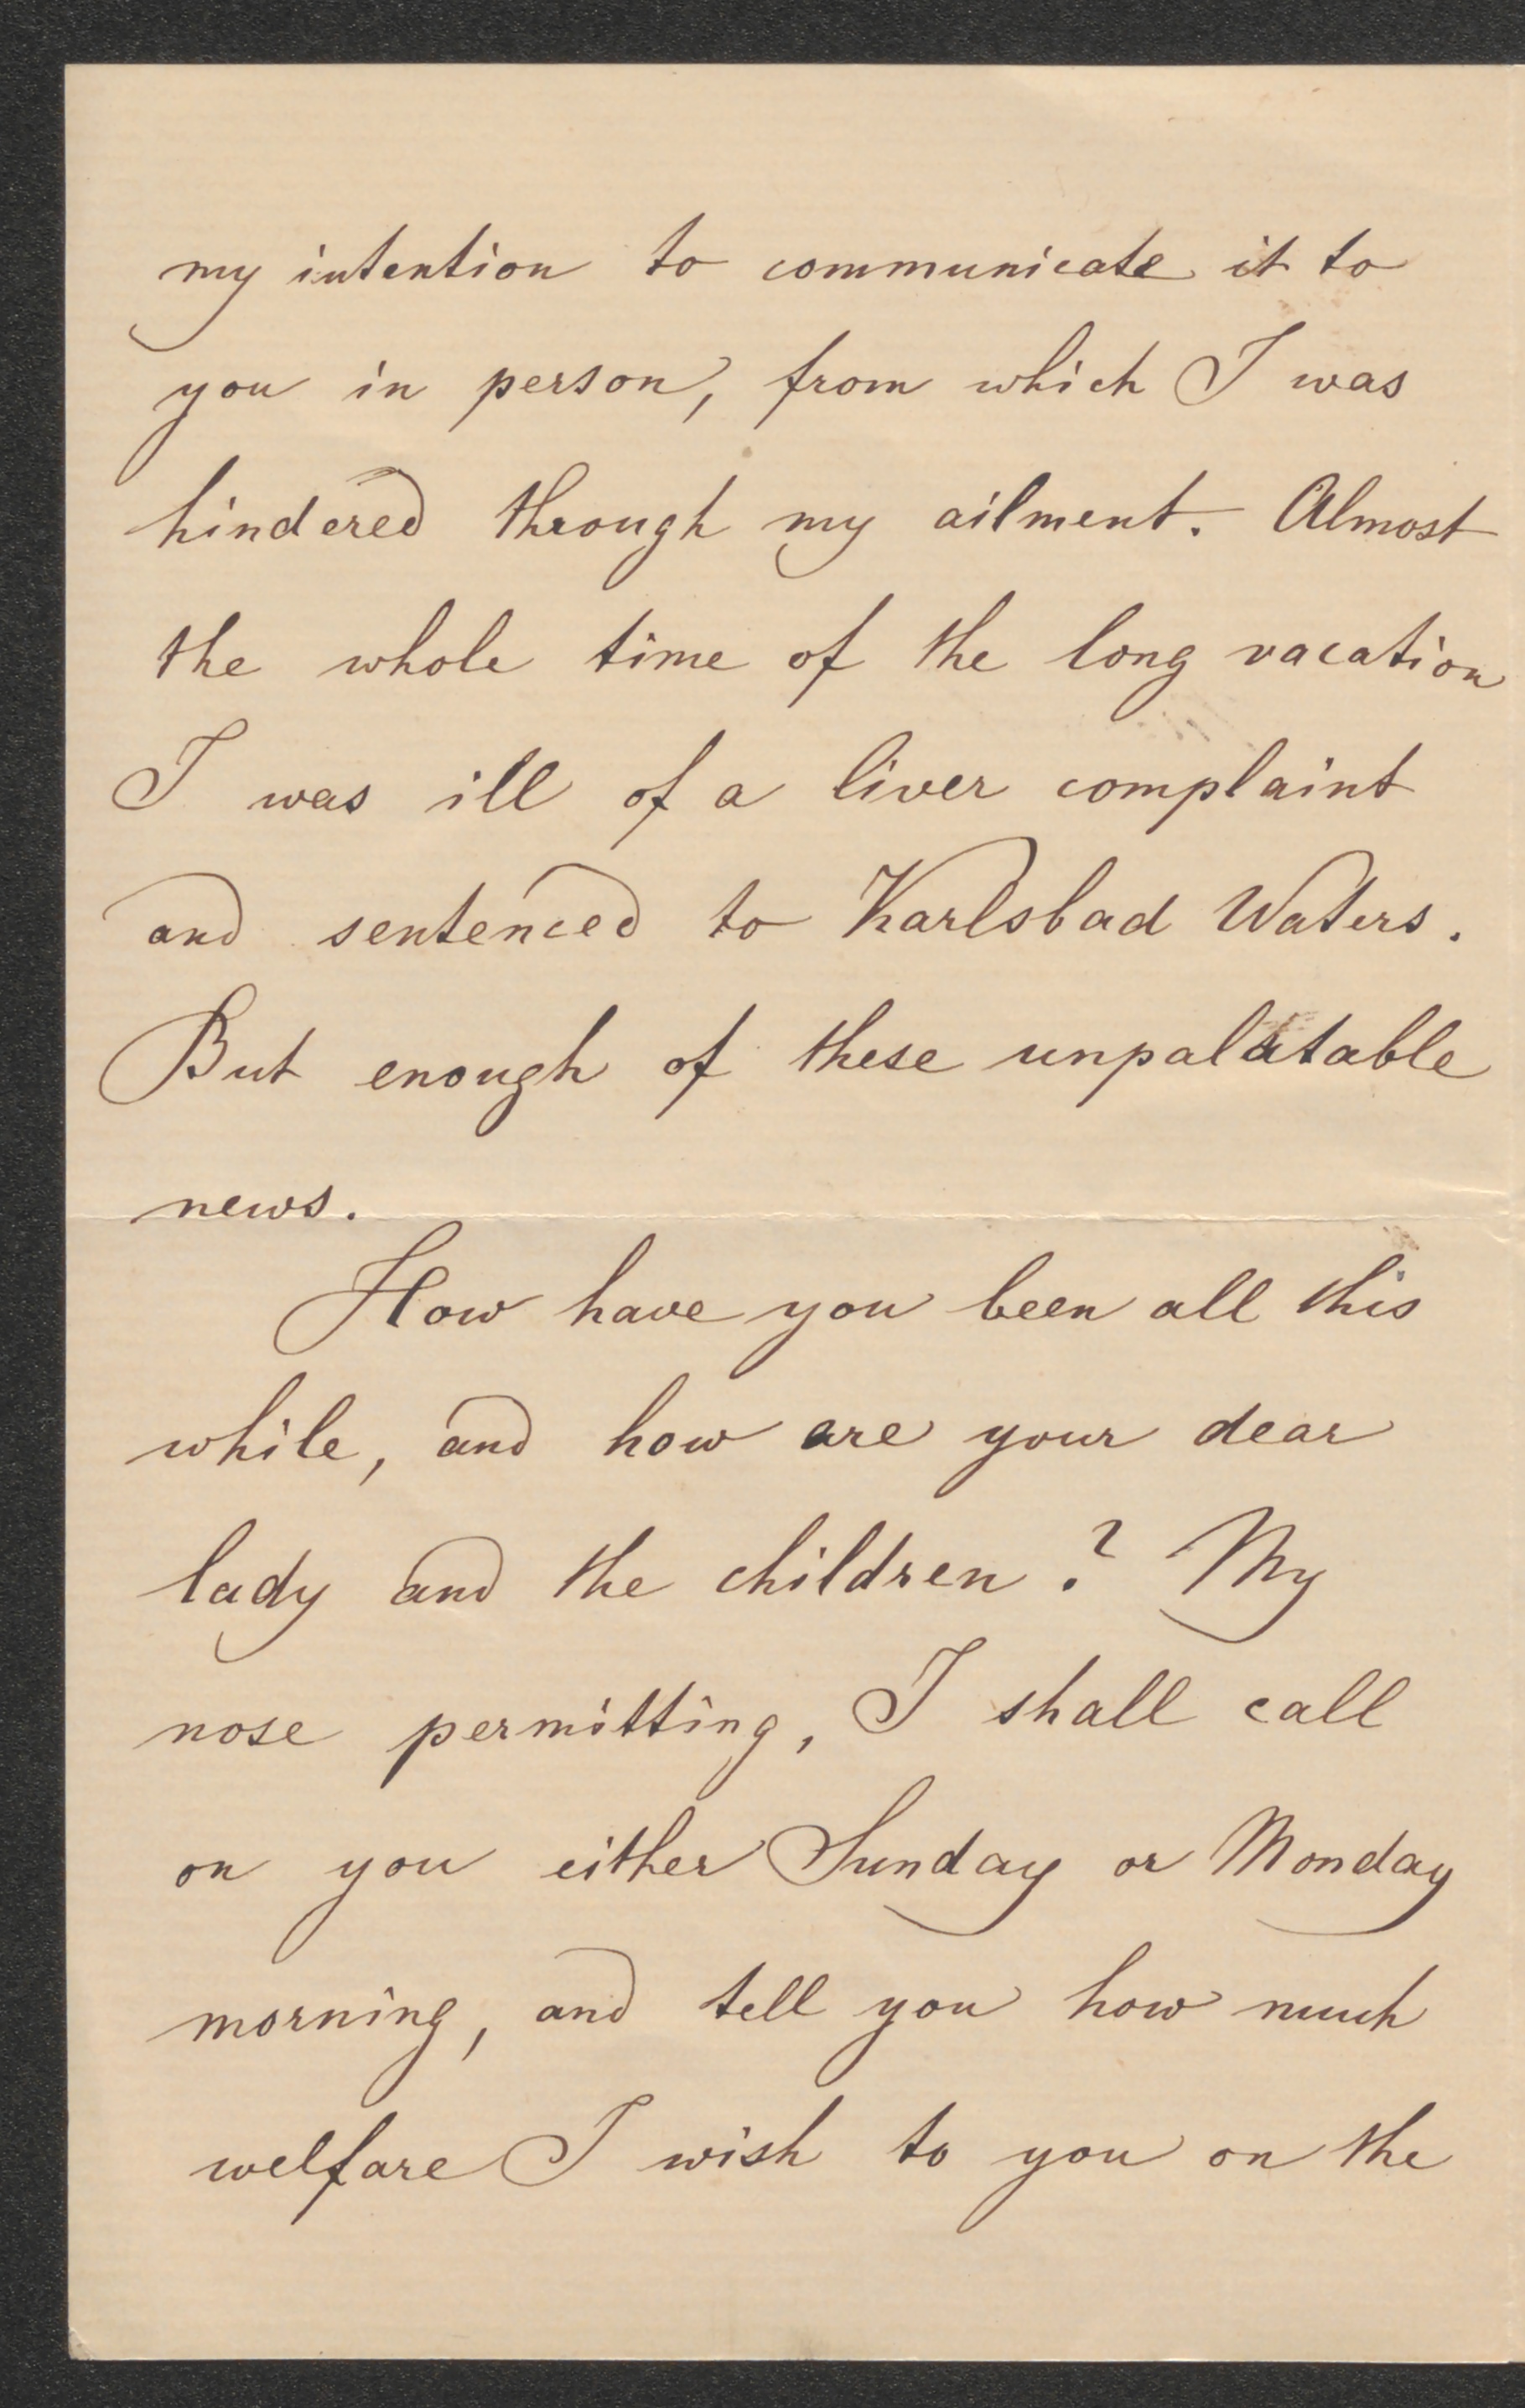 my intention to communicate it to
you in person, from which I was
hindered through my ailment. Almost
the whole time of the long vacation
I was ill of a liver complaint
and sentenced to Karlsbad Waters.
But enough of these unpalatable
news.
How have you been all this
while, and how are your dear
lady and the children? My
nose permitting, I shall call
on you either Sunday or Monday
morning, and tell you how much
welfare I wish to you on the